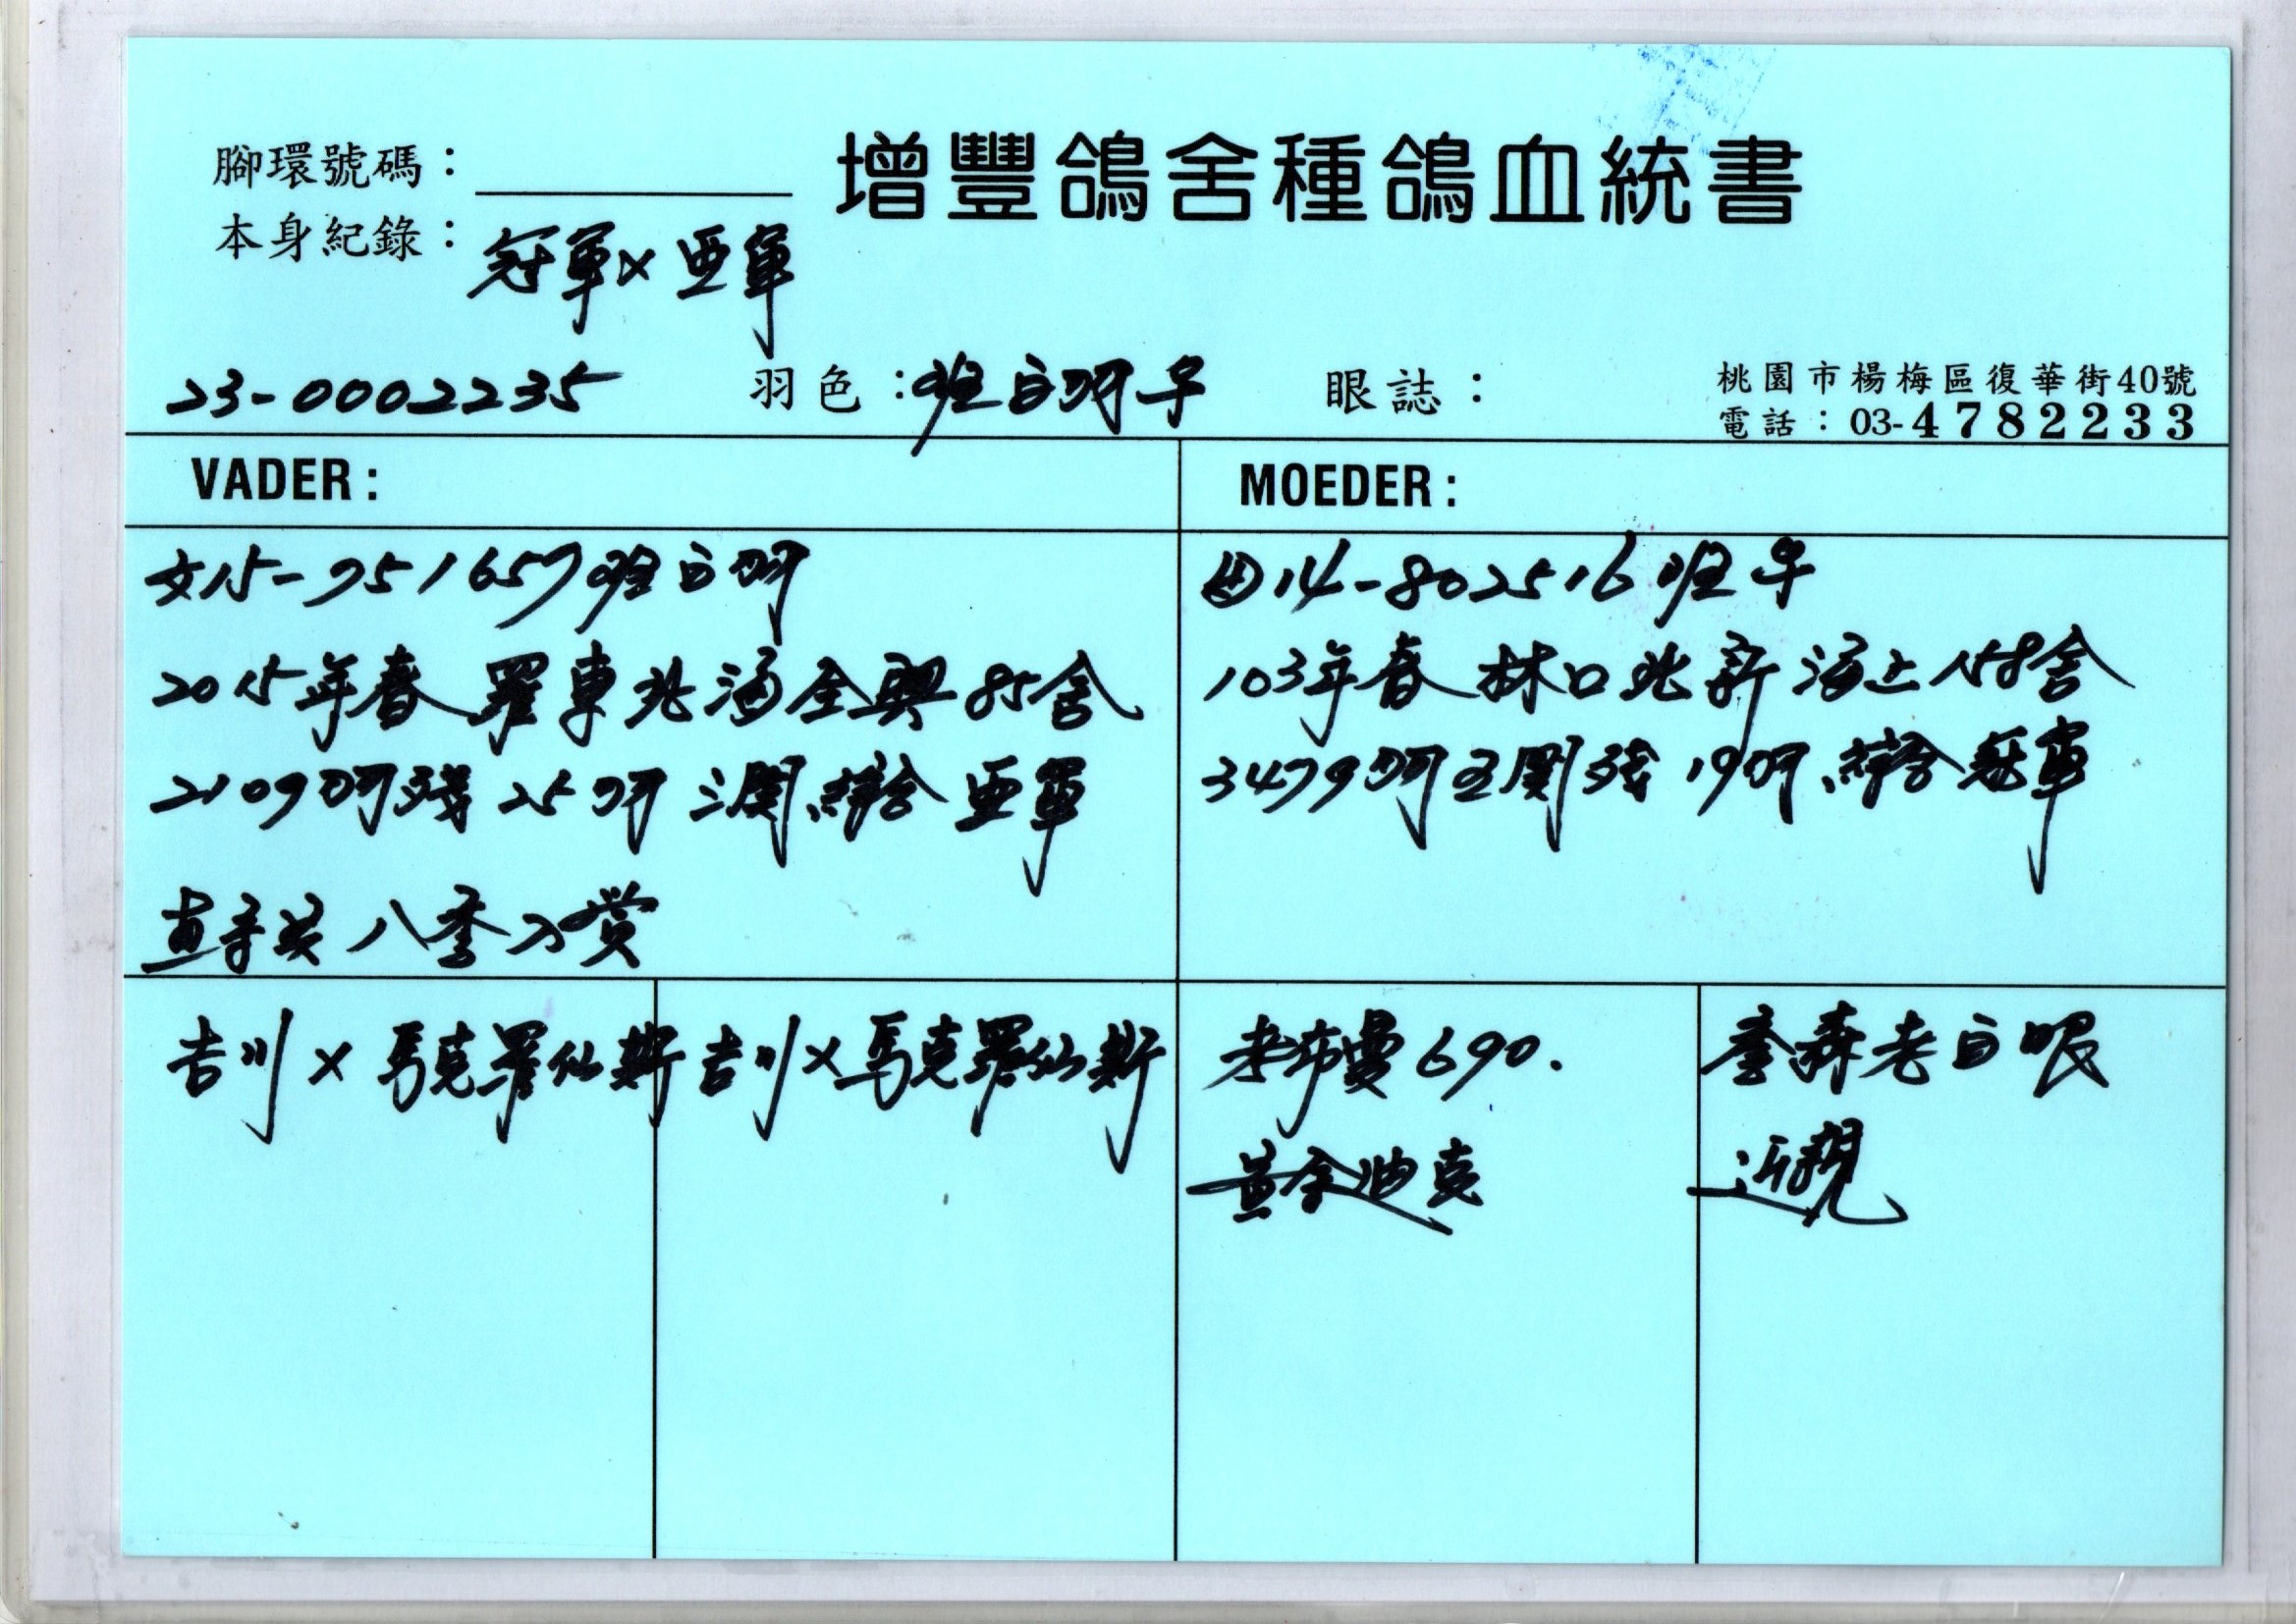 增豐鴿舍種鴿血統書
腳環號碼：
本身紀錄：冠軍×亞軍
23-0002235
羽色：斑白羽
眼誌：
桃園市楊梅區復華街40號
電話：03-4782233
VADER：
15-951657斑白羽
2015年春羅東北海全興85舍
2109羽殘25羽三關綜合亞軍
八季入賞
MOEDER：
14-802516斑
103年春林口北新海上158舍
3479羽五關殘19羽綜合冠軍
吉川×馬克羅仙斯
吉川×馬克羅仙斯
老布曼690.
黃金迪克
詹森老白眼
近親